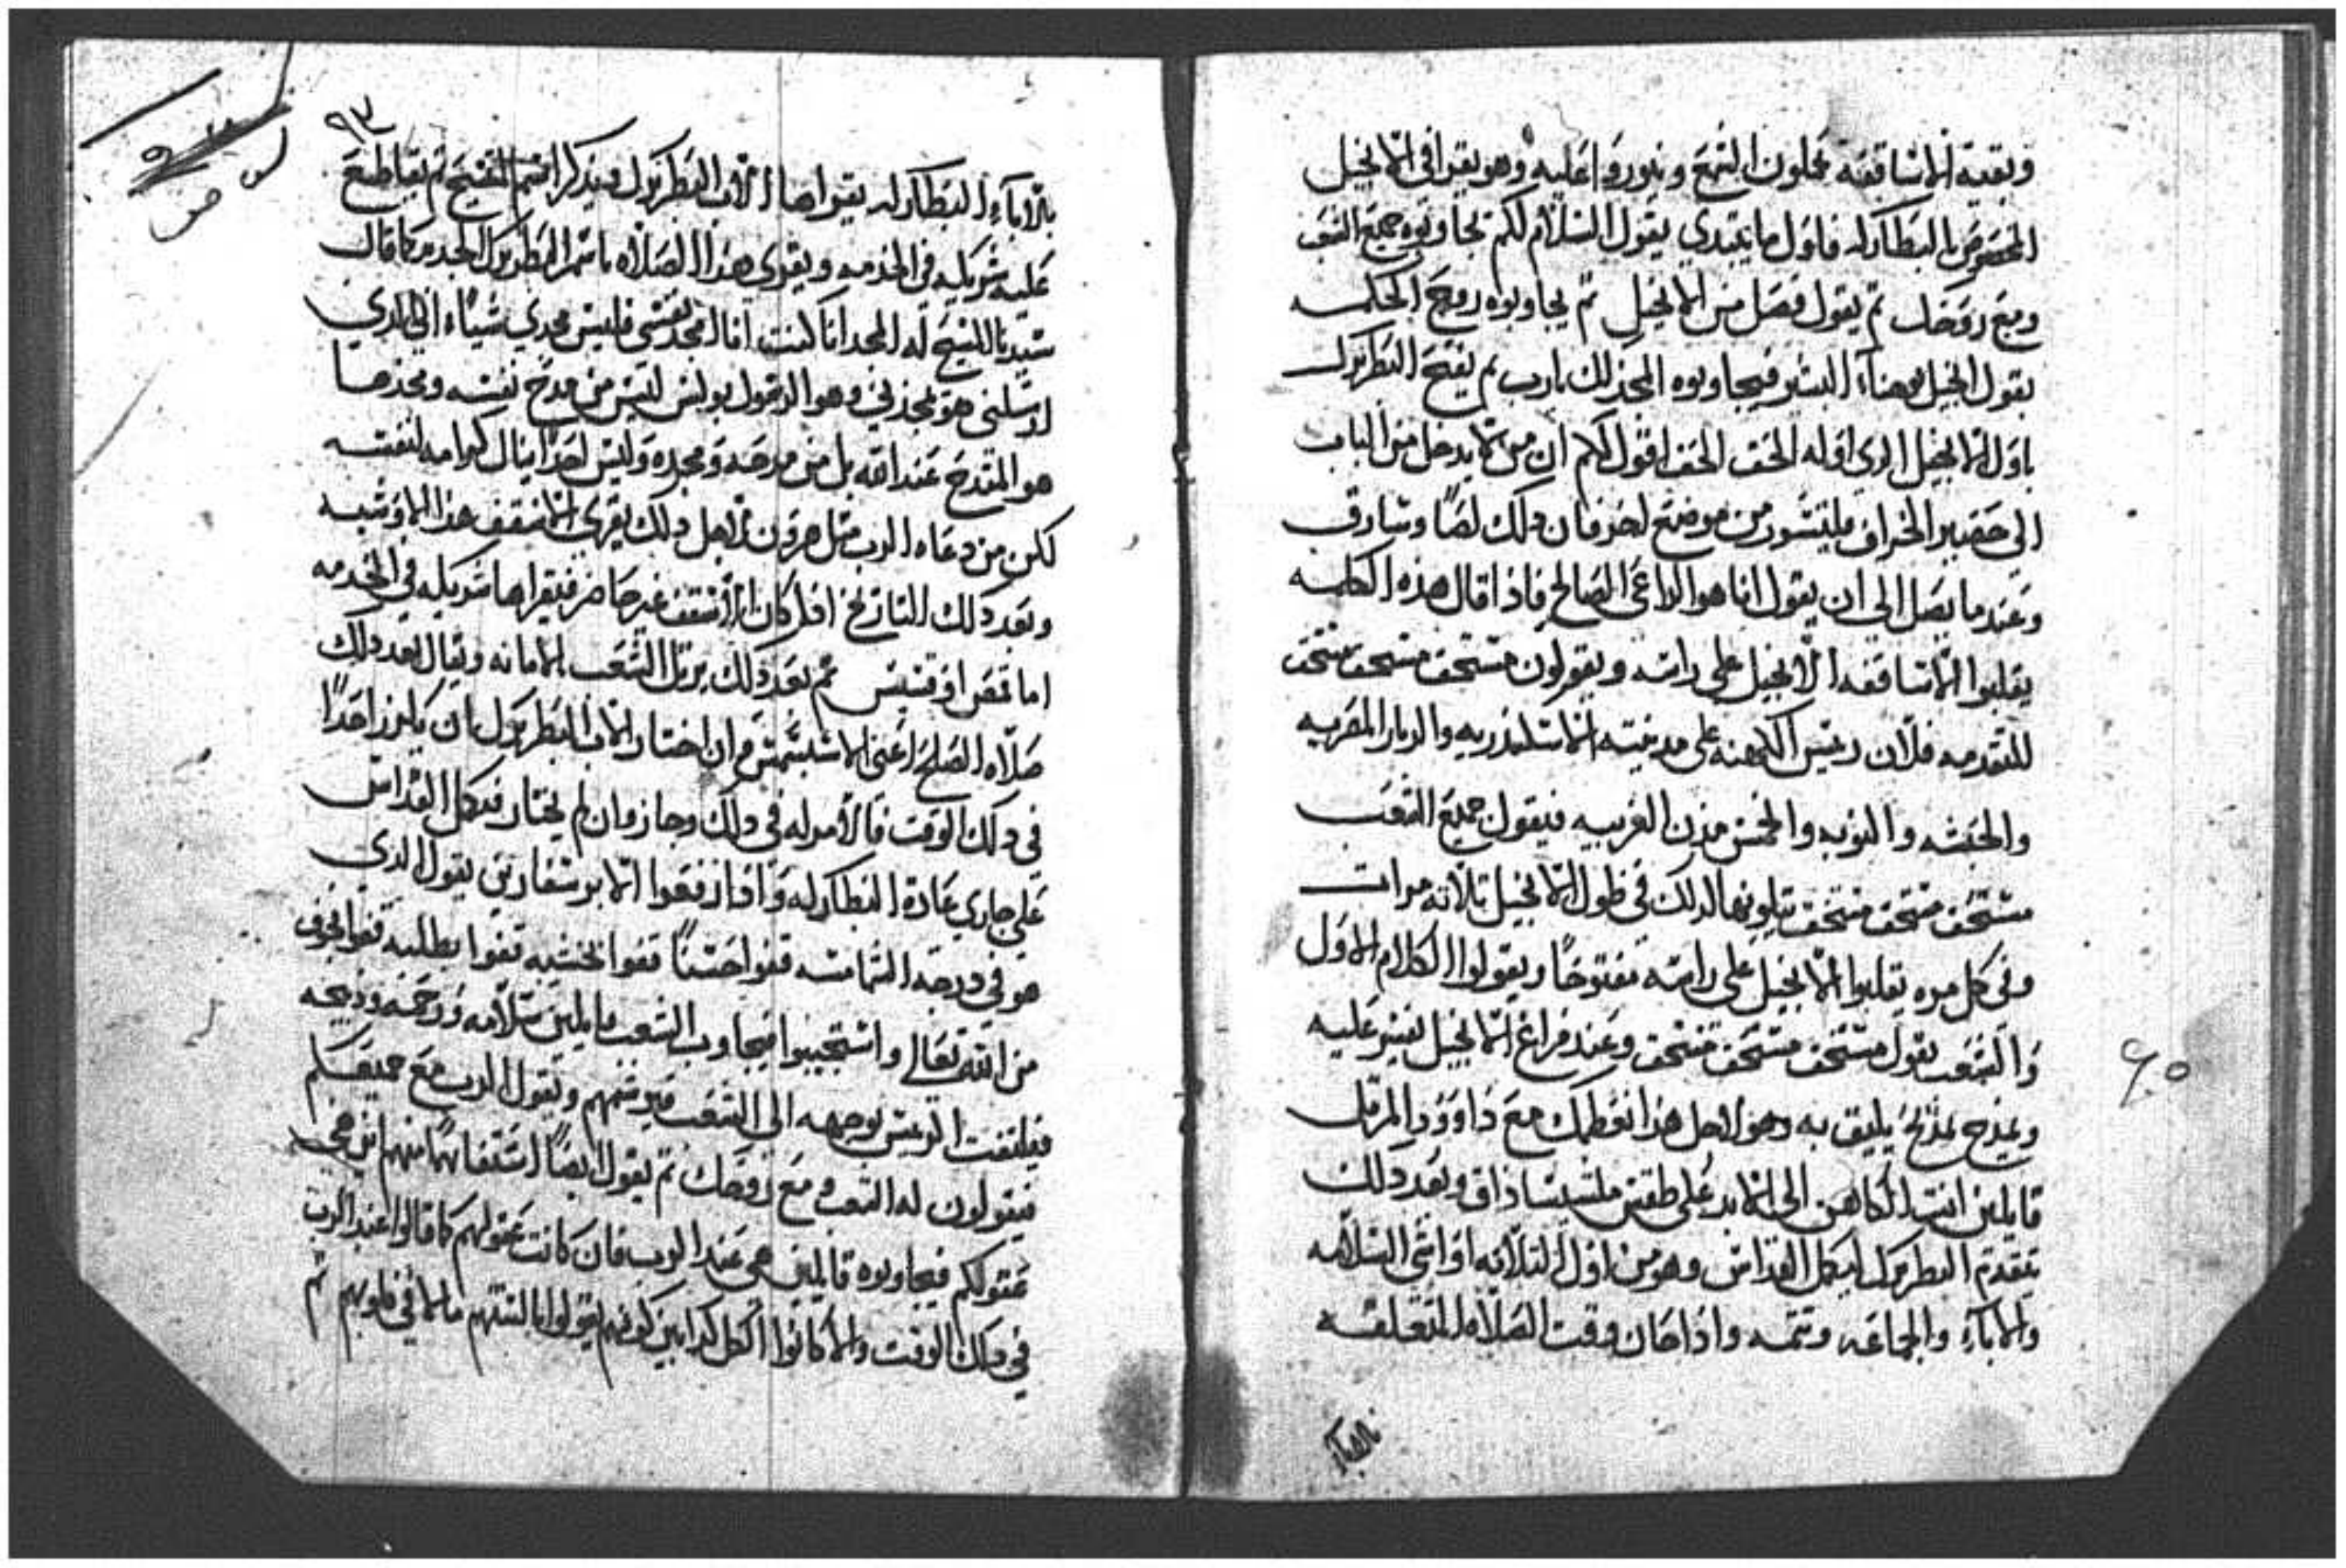 وبقية الاساقفة يحملون الشمع وينوروا عليه وهو يقرا في الانجيل
المخصوص بالبطاركه فاول ما يبتدي يقول السلام لكم يجاوبوه جميع الشعب
ومع روحك ثم يقول فصل من الانجيل ثم يجاوبوه روح الحكمه
يقول انجيل يوحنا البشير فيجاوبوه المجد لك يارب ثم يفتح البطريرك
باول الانجيل الدي اوله الحق الحق اقول لكم ان من لا يدخل من الباب
الي حضير الخراف بل يتسور من موضع اخر فان دلك لصًا وسارق
وعند ما يصل الي ان يقول انا هو الراعي الصالح فاذا قال هذه الكلمه
يقلبوا الاساقفه الانجيل علي راسه ويقولون مستحق مستحق مستحق
للتقدمه فلان رييس الكهنه علي مدينة الاسكندريه والديار المصريه
والحبشه والنوبه والخمس مدن الغربيه فيقول جميع الشعب
مستحق مستحق مستحق يتلونها لدلك في طول الانجيل تلاتة مرات
وفي كل مره يقلبوا الانجيل علي راسه مفتوحًا ويقولوا الكلام الاول
والشعب يقول مستحق مستحق مستحق وعند فراغ الانجيل يفسر عليه
ويمدح بمديح يليق به وهو لاجل هذا نعظمك مع داوود المرتل
قايلين انت الكاهن الي الابد علي طقس ملشيساذاق وبعد دلك
يتقدم البطريرك ليكمل القداس وهو من اول التلاته اواشي السلامه
والاباء والجماعه وتتمه واذا حان وقت الصلاه المتعلقه
بالاباء
٩٣
بالاباء البطاركه يقراها الاب البطريرك ويذكر اسم ثم يقاطع
عليه شريكه في الخدمه ويقري هذه الصلاه باسم البطريرك الجديد كما قال
سيدنا المسيح له المجد انا كنت انا امجد نفسي فليس مجدي شياء الي الدي
ارسلني هو يمجدني وهو الرسول بولس ليس من مدح نفسه ومجدها
هو المتدح عند الله بل من مدحه ومجده وليس احدًا ينال كرامه لنفسه
لكن من دعاه الرب مثل هرون لاجل دلك يقري الاسقف هذا الاوشيه
وبعد دلك للتاريخ اذا كان الاسقف غير حاضر فيقراها شريكه في الخدمه
اما قمص او قسيس ثم بعد دلك يرتل الشعب الامانه ويقال بعد دلك
صلاه الصلح اعني الاسبسمس وان اختار الاب البطريرك بان يكرز احدًا
في دلك الوقت فالامر له في دلك وجاز وان لم يختار فيكمل القداس
علي جاري عادة البطاركه واذا رفعوا الابرسفارين يقول الدي
هو في درجه الشمامسه قفوا حسنًا قفوا بخشيه قفوا بطلبه قفوا بخوف
من الله تعالي واستجيبوا فيجاوب الشعب قايلين سلامه ورحمه وديحه
فيلتفت الرييس بوجهه الي الشعب فيرشمهم ويقول الرب مع جميعكم
فيقولون له الشعب ومع روحك ثم يقول ايضًا استفهامًا منهم اين هي
عقولكم فيجاوبوه قايلين هي عند الرب فان كانت عقولهم كما قالوا عند الرب
في دلك الوقت والا كانوا الكل كدابين كونهم يقولوا بالسنتهم ما لا في قلوبهم ثم